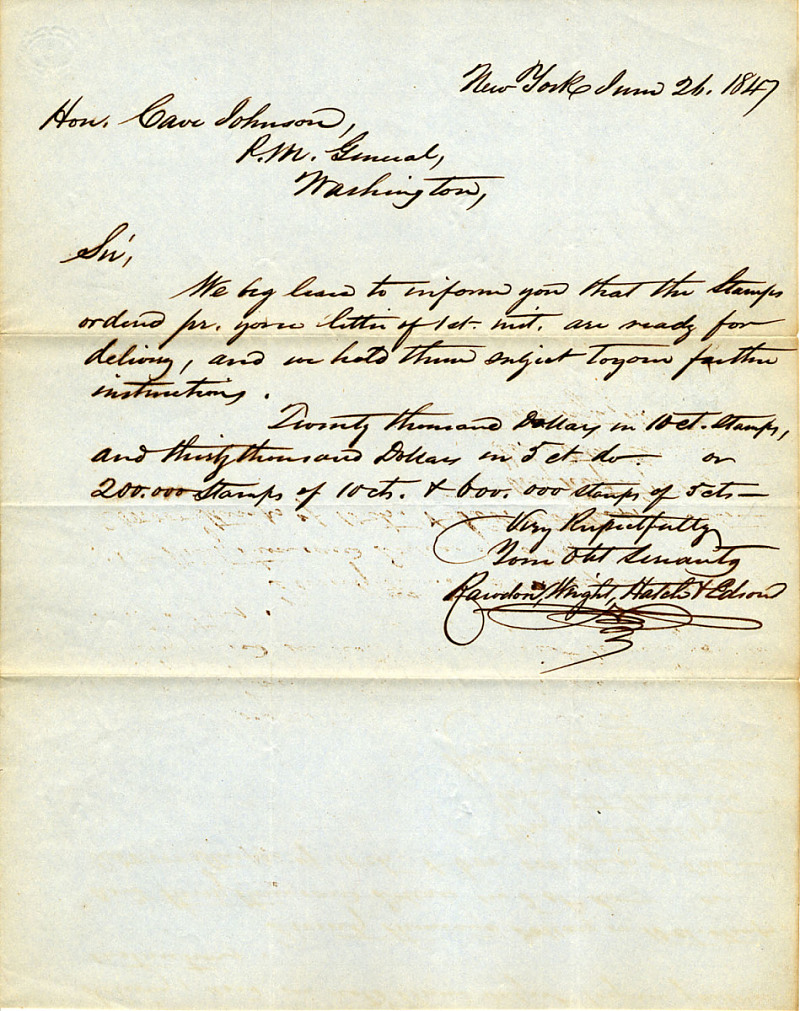 New York June 26. 1847
Hon. Cave Johnson,
P.M. General,
Washington,
Sir,
We beg leave to inform you that the Stamps
ordered pr. your letter of 1st. inst. are ready for
delivery, and we hold them subject to your further
instructions.
Twenty thousand Dollars in 10 ct. stamps,
and thirty thousand Dollars in 5 ct. do. or
200.000 stamps of 10 cts. & 600.000 stamps of 5 cts—
Very Respectfully
Your Obt Servants
Rawdon, Wright, Hatch & Edson